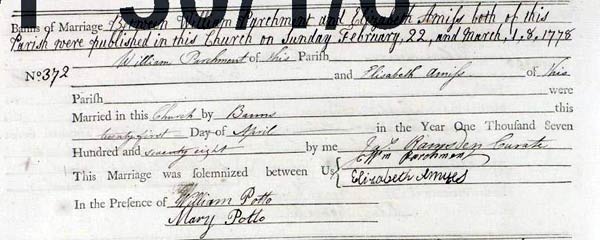 Banns of Marriage Between William Parchment and Elizabeth Amiss both of this
Parish were published in this Church on Sunday February, 22, and March, 1, 8, 1778
William Parchment of this Parish
No. 372 and Elisabeth Amiss of this
Parish were
Married in this Church by Banns this
twenty first Day of April in the Year One Thousand Seven
Hundred and seventy eight by me Ramsden Curate
This Marriage was solemnized between Us Wm Parchment
Elizabeth Amies
In the Presence of William Potto
Mary Potto